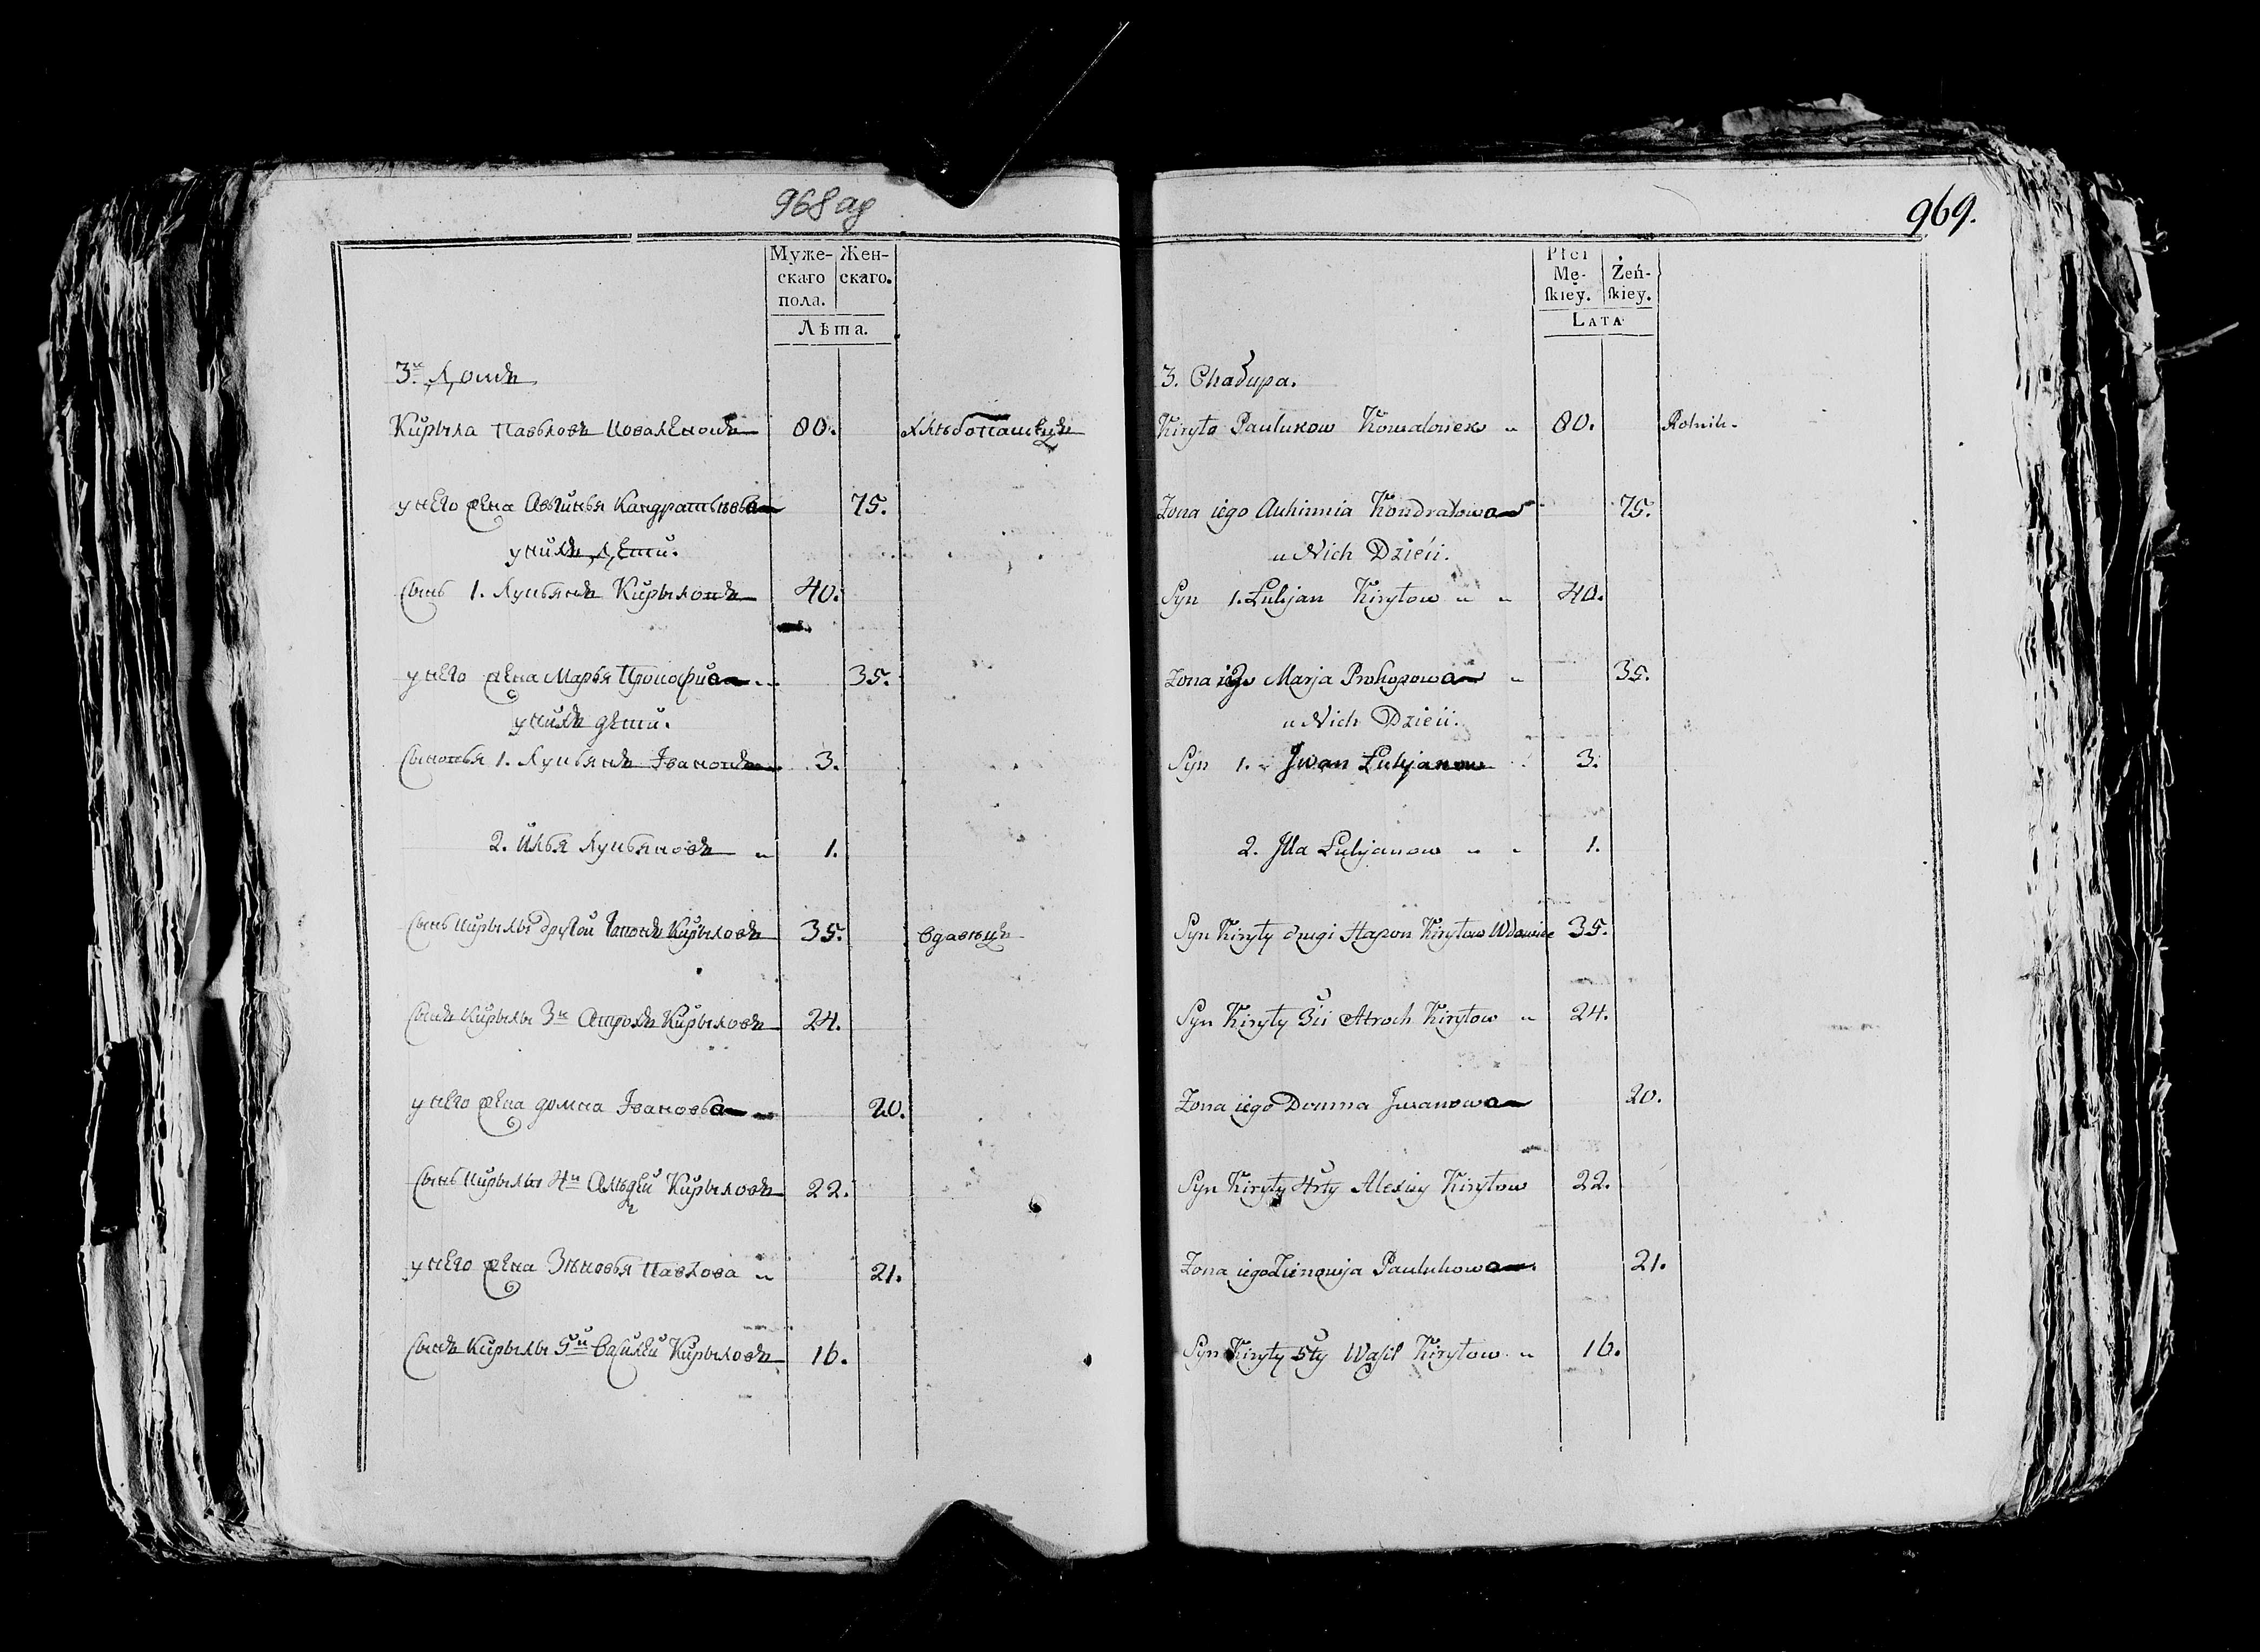 968 ад
Муже-
скаго
пола.
Жен-
скаго.
Лѣта.
3й Домъ
Кирыла Павловъ Коваленокъ 80. хлѣбопашецъ
у него жена Авгинья Кандратьева 75.
у нихъ дети.
Сынъ 1. Лукьянъ Кирыловъ 40.
у него жена Марья 35.
у нихъ дети.
Сыновья 1. Лукьянъ Ивановъ 3.
2. Илья Лукьяновъ 1.
Сынъ Кирылы другой Гапонъ Кирыловъ 35. вдавецъ
Сынъ Кирылы 3й Атрохъ Кирыловъ 24.
у него жена домна Іванова 20.
Сынъ Кирылы 4й Кирыловъ 22.
у него жена Зѣновья Павлова 21.
Сынъ Кирылы 5й Василей Кирыловъ 16.
969.
Płci
Mę-
skiey.
Żeń-
skiey.
LATA
3. Chałupa.
Kiryło Paulukow Kowalonek 80. Rolnik.
Żona iego Auhinnia Kondratowa 75.
u Nich Dzieci.
Syn 1. Łukjan Kiryłow 40.
Żona iego Marja Prokopowa 35.
u Nich Dzieci.
Syn 1. Jwan Łukjanow 3.
2. Jlla Łukjanow 1.
Syn Kiryły drugi Hapon Kiryłow Wdowiec 35.
Syn Kiryły 3ci Atroch Kiryłow 24.
Żona iego Domna Jwanowa 20.
Syn Kiryły 4rty Alexiey Kiryłow 22.
Żona iego Zienowija Paulukowa 21.
Syn Kiryły 5ty Wasil Kiryłow 16.